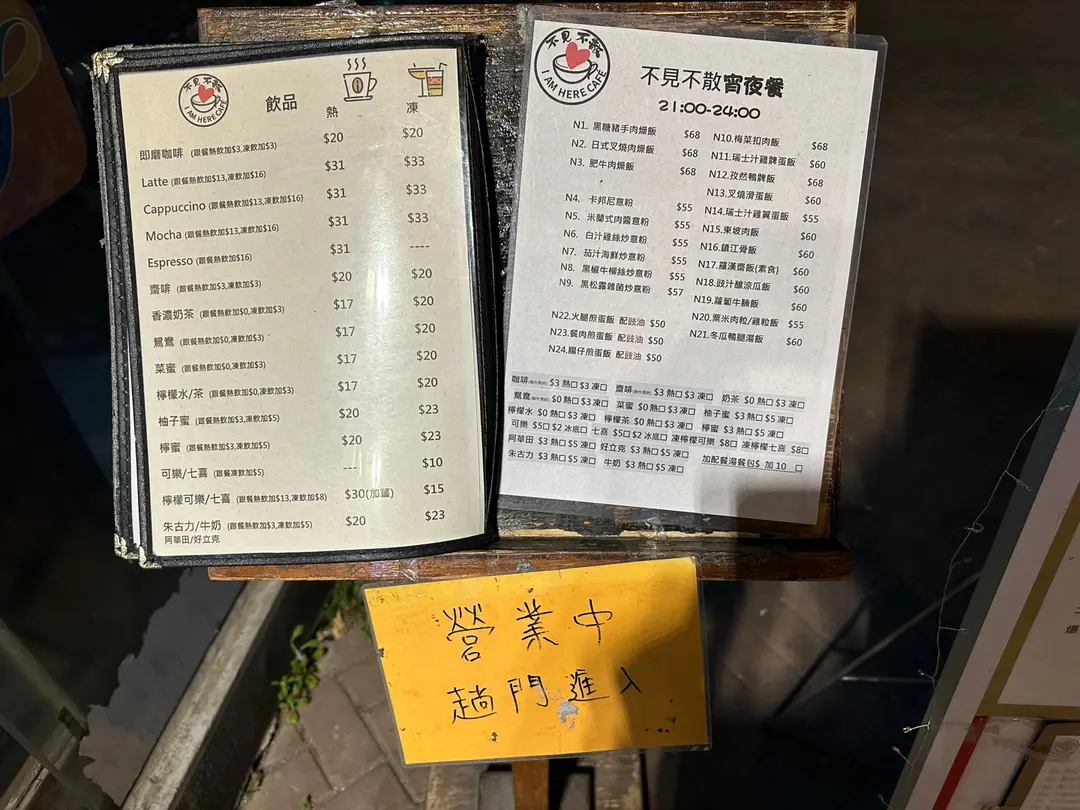 不見不散
I AM HERE CAFE
飲品
熱 凍
即磨咖啡 (跟餐熱飲加$3,凍飲加$3) $20 $20
Latte (跟餐熱飲加$13,凍飲加$16) $31 $33
Cappuccino (跟餐熱飲加$13,凍飲加$16) $31 $33
Mocha (跟餐熱飲加$13,凍飲加$16) $31 $33
Espresso (跟餐熱飲加$16) $31 ----
齋啡 (跟餐熱飲加$3,凍飲加$3) $20 $20
香濃奶茶 (跟餐熱飲加$0,凍飲加$3) $17 $20
鴛鴦 (跟餐熱飲加$0,凍飲加$3) $17 $20
菜蜜 (跟餐熱飲加$0,凍飲加$3) $17 $20
檸檬水/茶 (跟餐熱飲加$0,凍飲加$3) $17 $20
柚子蜜 (跟餐熱飲加$3,凍飲加$5) $20 $23
檸蜜 (跟餐熱飲加$3,凍飲加$5) $20 $23
可樂/七喜 (跟餐凍飲加$5) --- $10
檸檬可樂/七喜 (跟餐熱飲加$13,凍飲加$8) $30(加薑) $15
朱古力/牛奶 (跟餐熱飲加$3,凍飲加$5) $20 $23
阿華田/好立克
不見不散
I AM HERE CAFE
不見不散宵夜餐
21:00-24:00
N1. 黑糖豬手肉燥飯 $68
N2. 日式叉燒肉燥飯 $68
N3. 肥牛肉燥飯 $68
N4. 卡邦尼意粉 $55
N5. 米蘭式肉醬意粉 $55
N6. 白汁雞絲炒意粉 $55
N7. 茄汁海鮮炒意粉 $55
N8. 黑椒牛柳絲炒意粉 $55
N9. 黑松露雜菌炒意粉 $57
N22.火腿煎蛋飯 配豉油 $50
N23.餐肉煎蛋飯 配豉油 $50
N24.腸仔煎蛋飯 配豉油 $50
N10.梅菜扣肉飯 $68
N11.瑞士汁雞髀蛋飯 $60
N12.孜然鴨髀飯 $68
N13.叉燒滑蛋飯 $60
N14.瑞士汁雞翼蛋飯 $55
N15.東坡肉飯 $60
N16.鎮江骨飯 $60
N17.羅漢齋飯(素食) $60
N18.豉汁釀涼瓜飯 $60
N19.蘿蔔牛腩飯 $60
N20.粟米肉粒/雞粒飯 $55
N21.冬瓜鴨腿湯飯 $60
咖啡 $3 熱口 $3 凍口 齋啡 $3 熱口 $3 凍口 奶茶 $0 熱口 $3 凍口
鴛鴦 $0 熱口 $3 凍口 菜蜜 $0 熱口 $3 凍口 柚子蜜 $3 熱口 $5 凍口
檸檬水 $0 熱口 $3 凍口 檸檬茶 $0 熱口 $3 凍口 檸蜜 $3 熱口 $5 凍口
可樂 $5口 $2 冰底口 七喜 $5口 $2 冰底口 凍檸檬可樂 $8口 凍檸檬七喜 $8口
阿華田 $3 熱口 $5 凍口 好立克 $3 熱口 $5 凍口
朱古力 $3 熱口 $5 凍口 牛奶 $3 熱口 $5 凍口 加配餐湯餐包$ 加 10 口
營業中
趟門進入